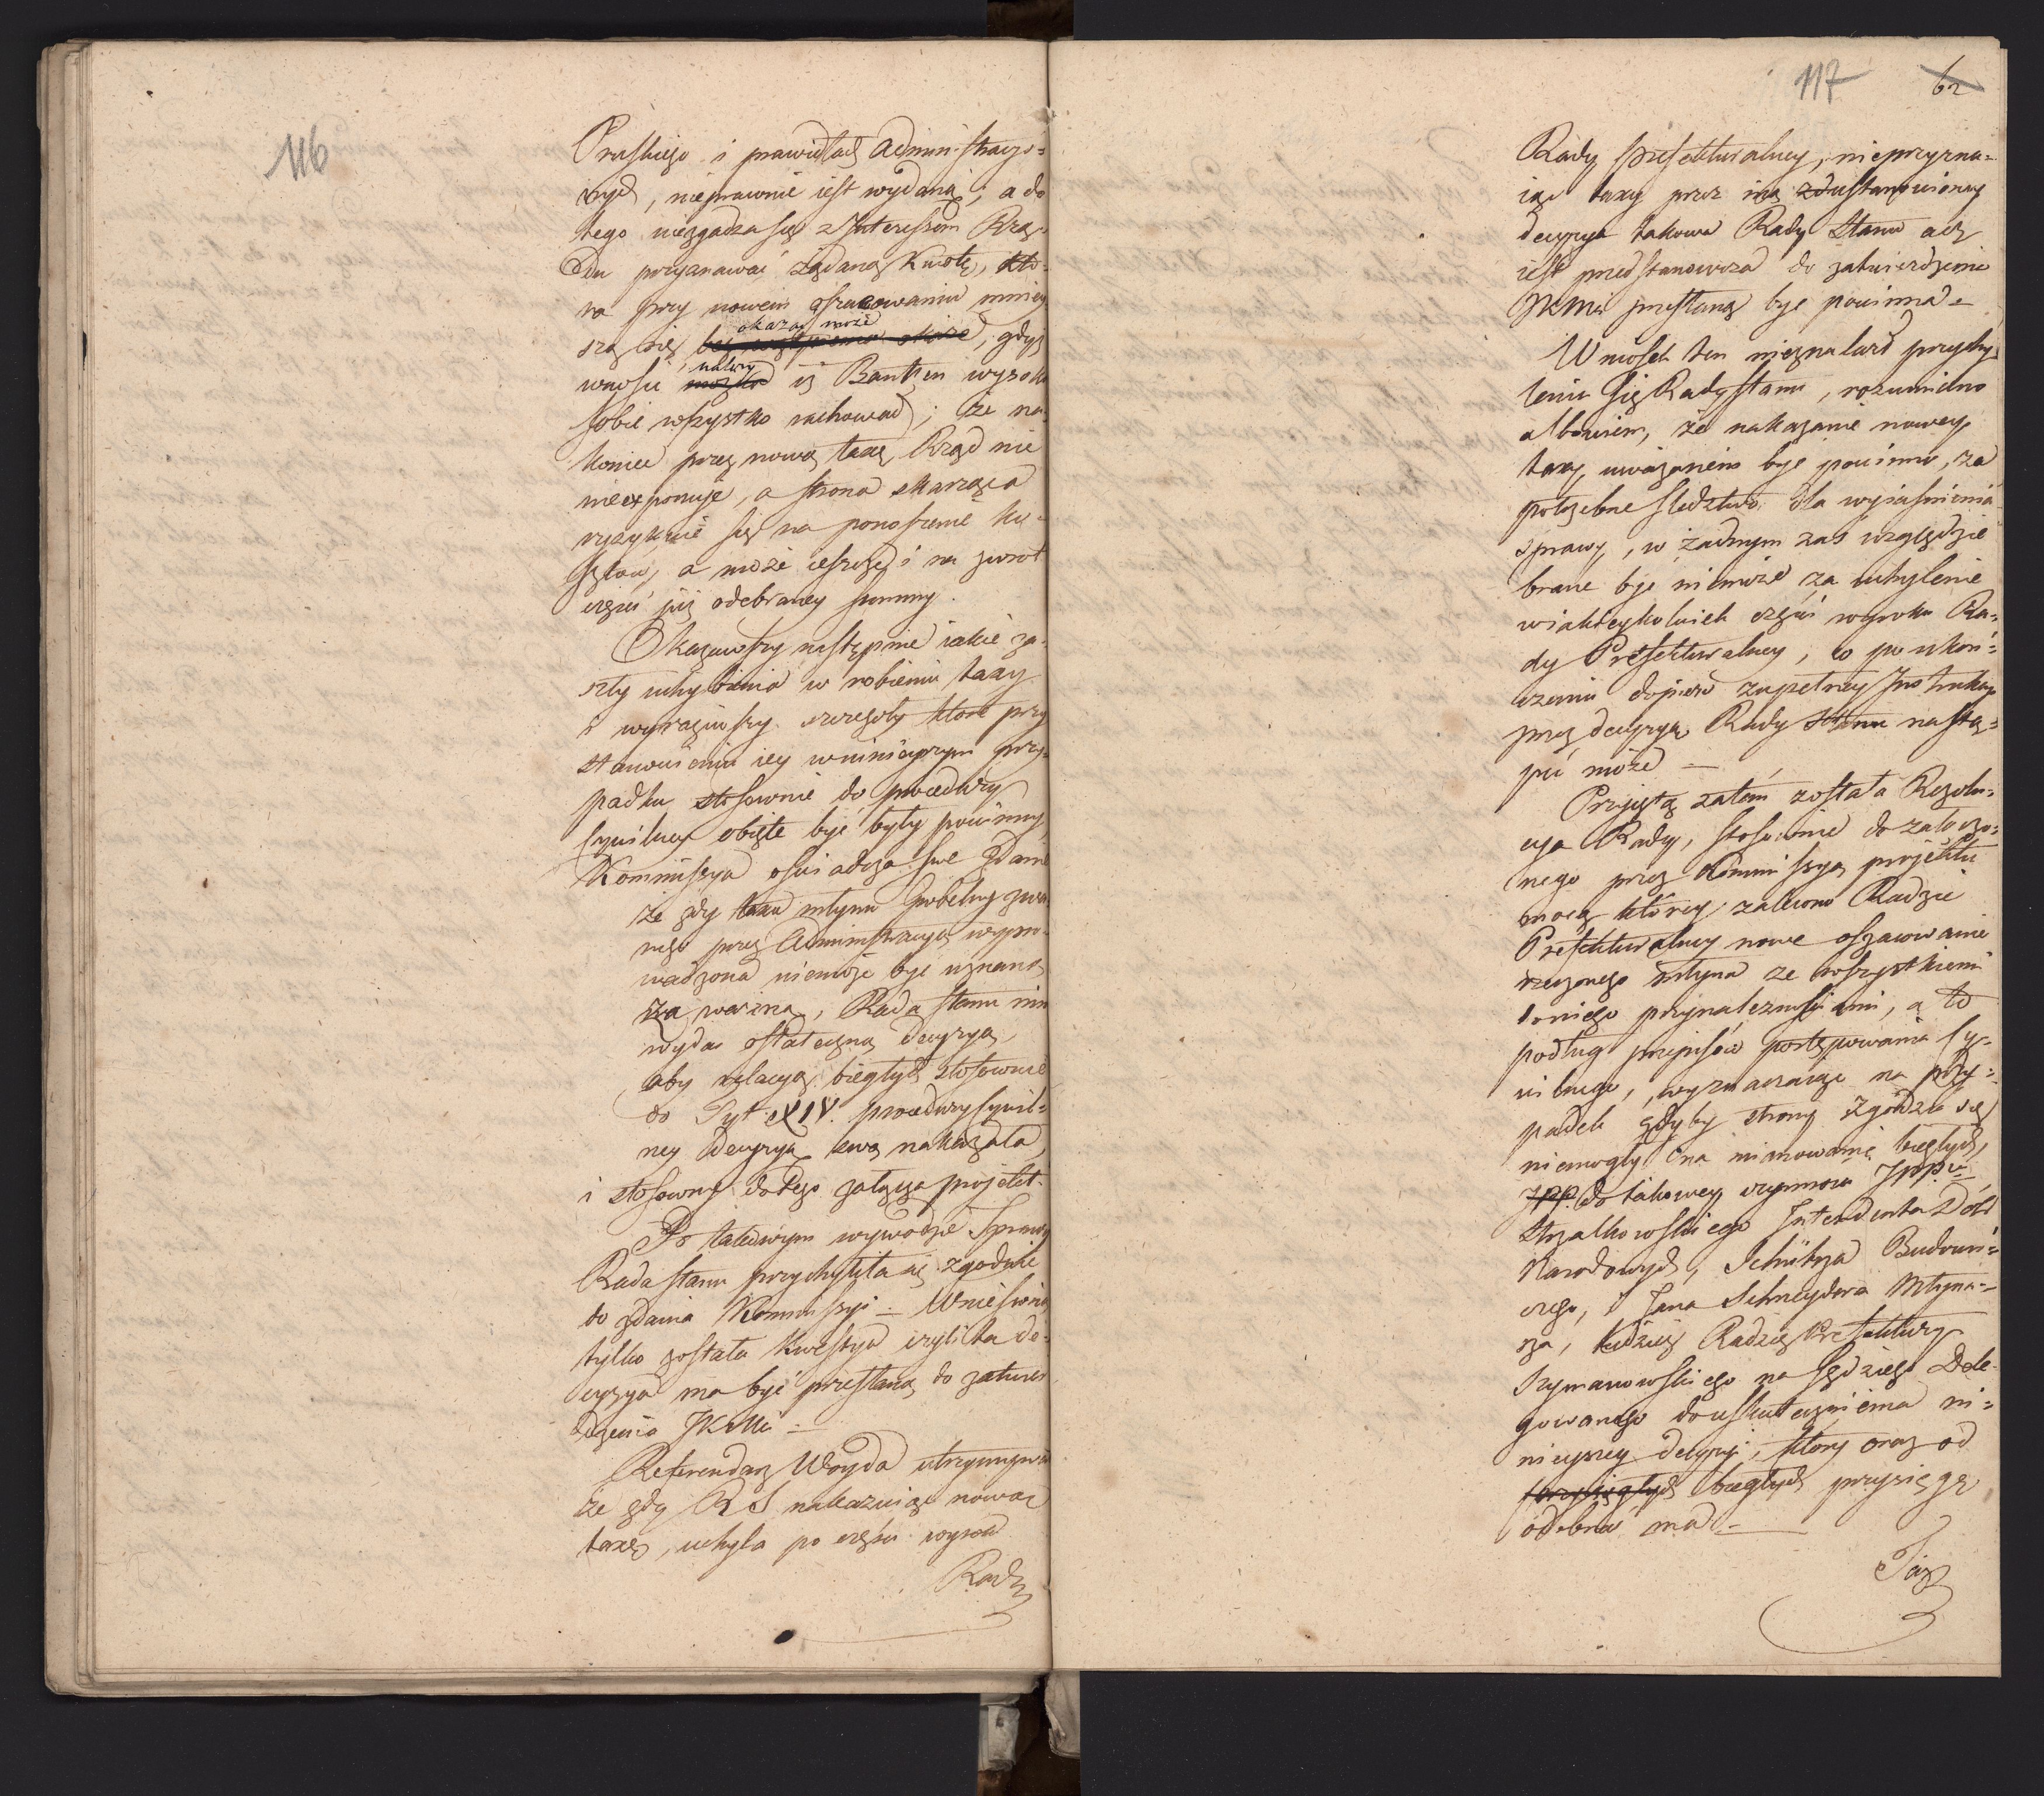 116
Pruskiego i prawidłach Administracyi=
nych, nieprawnie iest wydaną; a do
tego niezgadza się z Interessem Rzą-
du przyznawać żądaną Kwotę, któ-
ra przy nowem oszacowaniu mniey
szą się okazać może, gdyż
wnosić należy iż Banken wysoko
sobie wszystko rachował; że na
koniec przez nową taxę Rząd nic
nieexponuje, a strona skarżąca
ryzykuie się na ponoszenie ko-
sztów, a może ieszcze i na zwrot
części już odebraney summy.
Okazawszy następnie iakie za-
szły uchybienia w robieniu taxy
i wyraziwszy szczegóły które przy
stanowieniu iey w niniejszym przy-
padku stosownie do procedury
Cywilney obięte być były powinny
Kommissya oświadcza swe zdanie
że gdy taxa młynu zwa-
nego przez Administracyą wypro-
wadzona niemoże być uznaną
za ważną, Rada Stanu nim
wyda ostateczną decyzyą,
aby relacyą biegłych stosownie
do Tyt: XIV. procedury Cywil=
ney decyzyą swą nakazała,
i stosowny do tego załącza projekt.
Po takowym wywodzie Sprawy
Rada Stanu przychyliła się zgodnie
do zdania Kommissyi. — Wniesioną
tylko została kwestya czyli ta de-
cyzya ma być przesłaną do zatwier
dzenia JKMci —
Referendarz Woyda utrzymywał
że gdy RS nakazuiąc nową
taxę, uchyla po części wyrok
Rady
117
62
Rady Prefekturalney, nieprzyzna-
iąc taxy przez nią ustanowioney
decyzya takowa Rady Stanu acz
iest przedstanowcza do zatwierdzenia
JKMci przesłaną być powinna —
Wniosek ten nieznalazł przychy-
lenia się Rady Stanu, rozumiano
albowiem, że nakazanie nowey
taxy uważanem być powinno, za
potrzebne śledztwo dla wyiaśnienia
sprawy, w żadnym zaś względzie
brane być niemoże za uchylenie
w iakieykolwiek części wyroku Ra=
dy Prefekturalney, co po ukoń=
czeniu dopiero zupełney Instrukcyi
przez decyzyą Rady Stanu nastą=
pić może —
Przyjętą zatém została Rezolu=
cya Rady, stosownie do załączo=
nego przez Kommissyą projektu
mocą którey zalecono Radzie
Prefekturalney nowe oszacowanie
rzeczonego młyna ze wszystkiemi
do niego przynależnościami, a to
podług przepisów postępowania Cy=
wilnego, wyznaczaiąc na przy=
padek gdyby strony zgodzić się
niemogły na mianowanie biegłych,
do takowey czynności JPPa
Strzałkowskiego Intendenta Dóbr
Narodowych, Schütza Budowni=
czego, i Jana Schneydera Młyna=
rza, tudzież Radzcę Prefektury
Szymanowskiego na Sędziego Dele-
gowanego do uskutecznienia ni=
nieyszey decyzyi, który oraz od
biegłych przysięgę
odebrać ma —